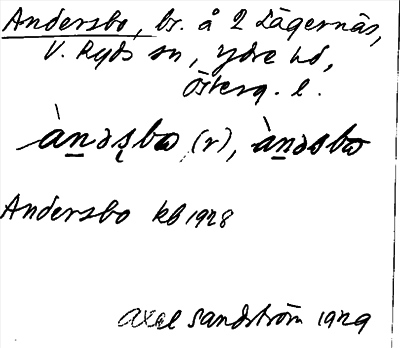 Andersbo, br. å 2 Lägernäs,
V. Ryds sn, Ydre hd,
Österg. l.
àn̲əʂbω (r), àn̲əsbω
Andersbo kb 1928
Axel Sandström 1929